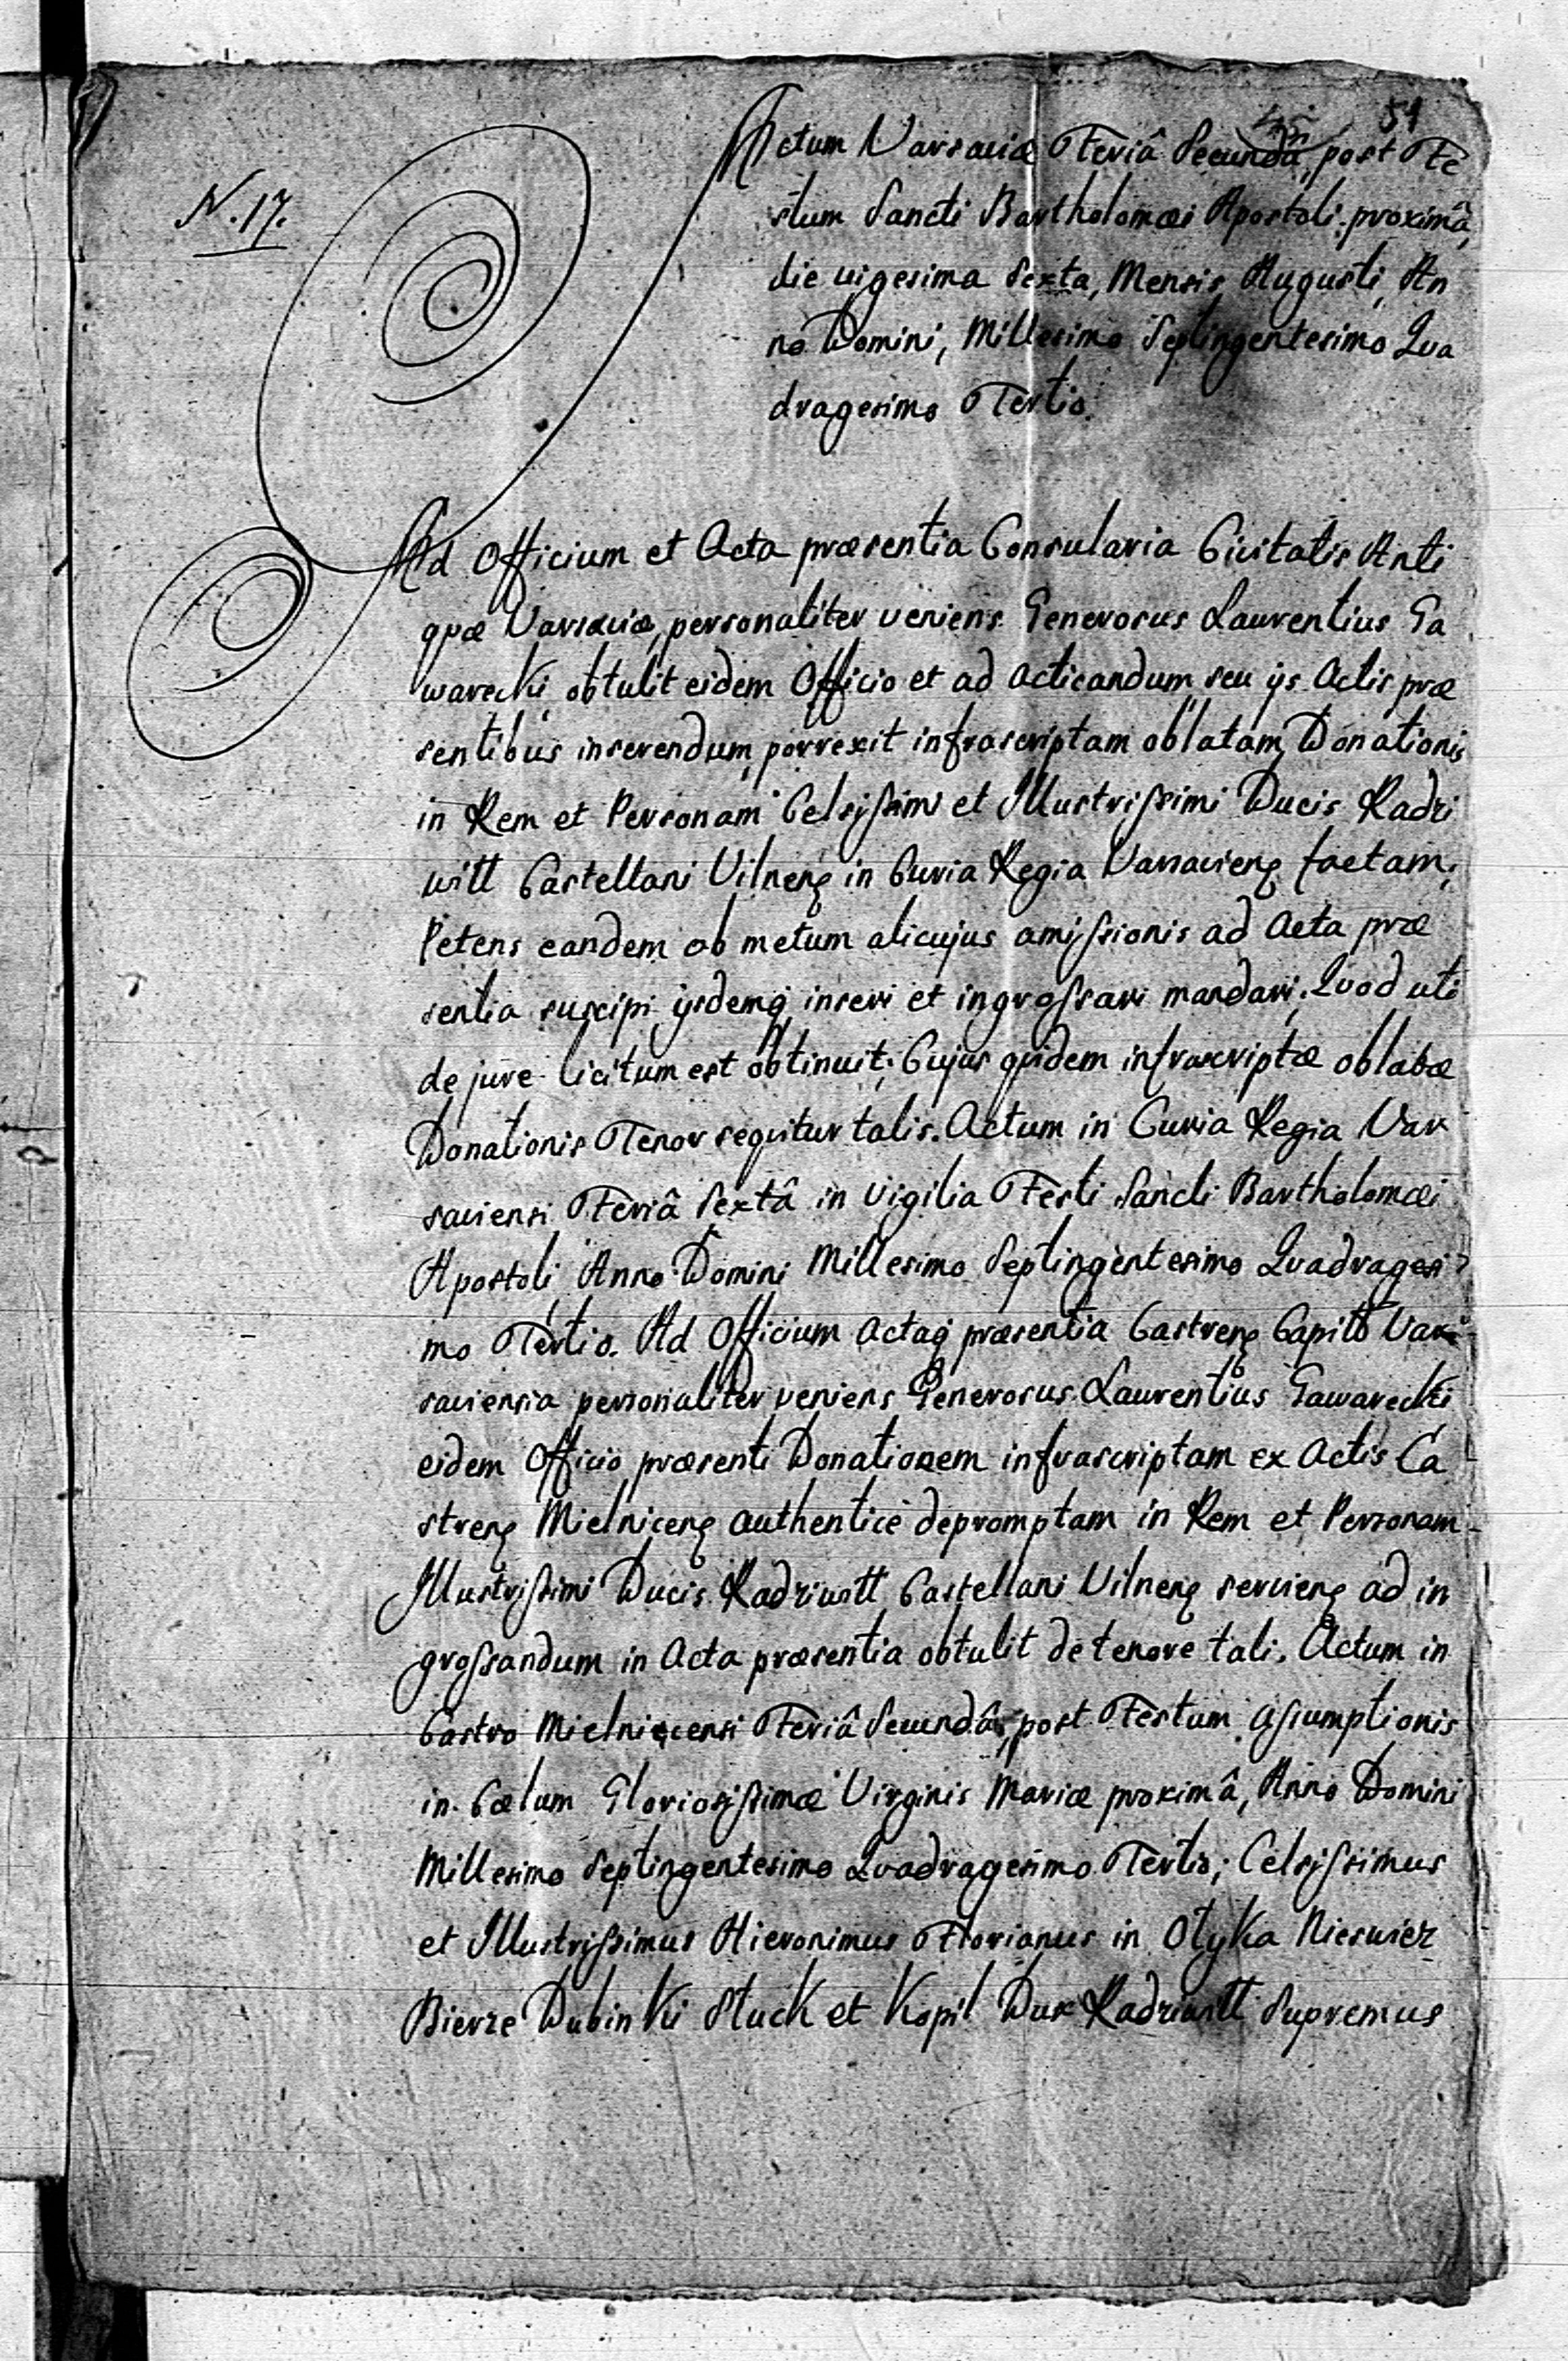 51
N. 17.
Actum Varsaviæ Feriâ Secunda, post Fe
stum Sancti Bartholomæi Apostoli proximâ,
die vigesima Sexta, Mensis Augusti, An
no Domini, Millesimo Septingentesimo Qua
dragesimo Tertio.
Ad Officium et Acta præsentia Consularia Civitatis Anti
quæ Varsaviæ, personaliter veniens Generosus Laurentius Ga
warecki, obtulit eidem Officio et ad acticandum seu ijs Actis præ
sentibus inserendum, porrexit infrascriptam oblatam, Donationis
in Rem et Personam Celsissimi et Illustrissimi Ducis Radzi
witt Castellani Vilneñ in Curia Regia Varsavieñ factam;
Petens eandem ob metum alicujus amissionis ad Acta præ
sentia suscipi ijsdemq inseri et ingrossari mandari; Quod uti
de jure licitum est obtinuit; Cujus quidem infrascriptæ oblatæ
Donationis Tenor sequitur talis. Actum in Curia Regia Var
saviensi Feriâ Sextâ in Vigilia Festi Sancti Bartholomæi
Apostoli, Anno Domini Millesimo Septingentesimo Quadragesi
mo Tertio. Ad Officium Actaq præsentia Castreñ Capitt Var
saviensia personaliter veniens Generosus Laurentius Gawarecki
eidem Officio præsenti Donationem infrascriptam ex Actis Ca
streñ Mielniceñ authentice depromptam in Rem et Personam
Illustrissimi Ducis Radziwitt Castellani Vilneñ servieñ ad in
grossandum in Acta præsentia obtulit de tenore tali. Actum in
Castro Mielnicensi Feriâ Secundâ, post Festum Assumptionis
in Cælum Gloriosissimæ Virginis Mariæ proximâ, Anno Domini
Millesimo Septingentesimo Quadragesimo Tertio; Celsissimus
et Illustrissimus Hieronimus Florianus in Otyka Nieswiez
Bierze Dubinki Stuck et Kopil Dux Radziwitt Supremus